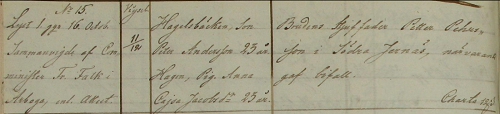 N. 15.
Lyst 1 ggr 16 Octob.
Sammanvigde af Com-
ministern Fr. Falk i
Arboga, enl. Attest.
Vigsel
31/12
Hagelsbäcken, Son
Petter Andersson 23 år.
Hagen, Pig. Anna
Cajsa Jacobsdr 23 år.
Brudens Styffader Petter Peters-
son i Södra Jernäs, närvarande
gef bifall.
Charta